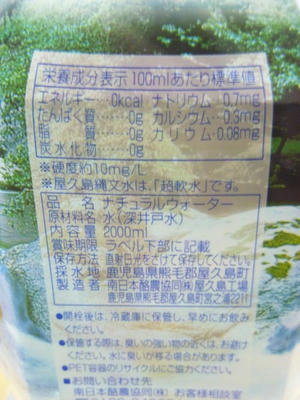 栄養成分表示 100mlあたり標準値
エネルギー…0kcal ナトリウム…0.7mg
たんぱく質……0g カルシウム…0.3mg
脂　　質……0g カリウム…0.08mg
炭水化物……0g
※硬度約10mg/L
※屋久島縄文水は、「超軟水」です。
品　　名 ナチュラルウォーター
原材料名 水(深井戸水)
内容量 2000ml
賞味期限 ラベル下部に記載
保存方法 直射日光をさけて保存してください。
採水地 鹿児島県熊毛郡屋久島町
製造者 南日本酪農協同㈱屋久島工場
鹿児島県熊毛郡屋久島町宮之浦2211
●開栓後は、冷蔵庫に保管し、早めにお飲み
ください。
●保管する際は、臭いの強い物の近くは、お避け
ください。水に臭いが移る場合があります。
●PET容器のリサイクルにご協力ください。
■お問い合わせ先
南日本酪農協同㈱ お客様相談室